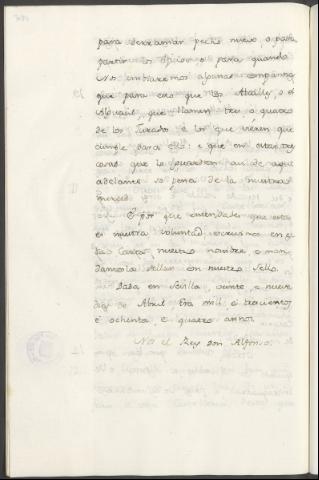 para derramar pecho nuevo, o para
partir los oficios o para quando
Nos embiaremos algunas compañas
que para esto que los Alcalles, o el
Alguacil, que llamen tres, o quatro
de los Jurados é los que vieren que
cumple para ello: e que en otras tres
cosas que lo guarden asi de aqui
adelante so pena de la nuestra
merced.
E por que entendades que esta
es nuestra voluntad, escrivimos en es
ta Carta nuestro nombre e man
damosla sellar con nuestro Sello.
Dada en Sevilla, veinte, e nueve
dias de Abril Era mill, é trecientos,
é ochenta, e quatro años.
Nos el Rey don Alfonso.